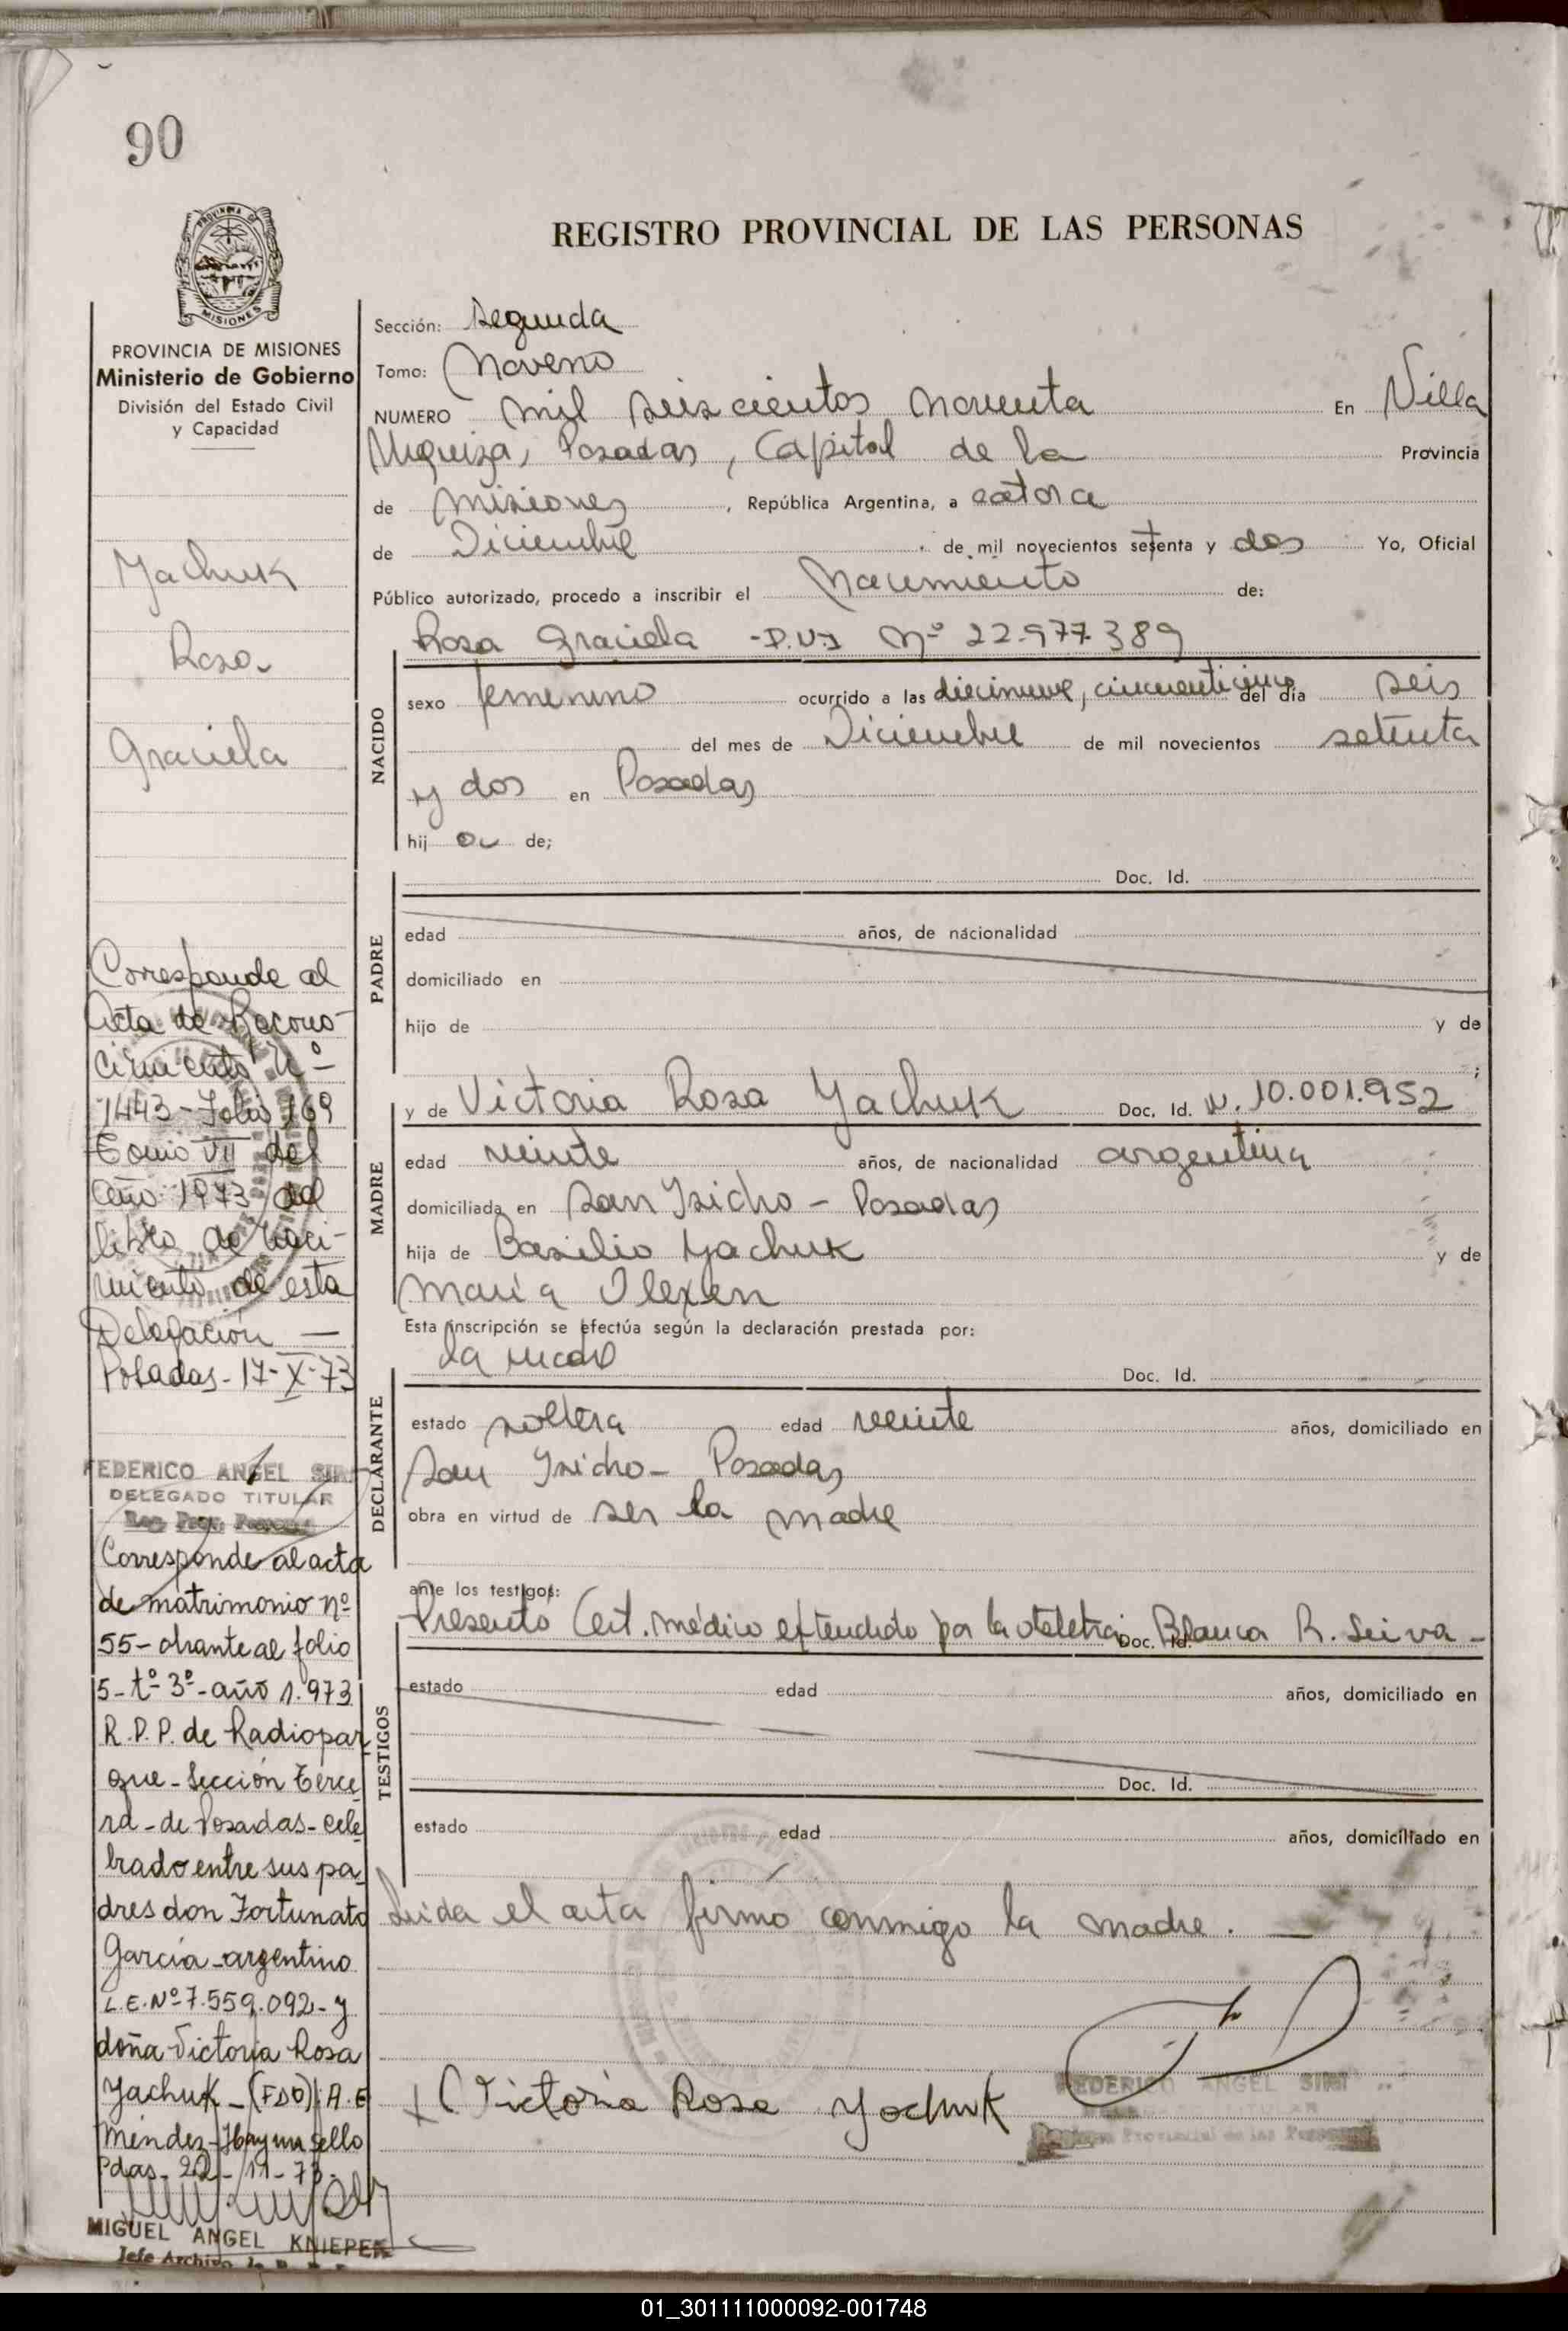 90
PROVINCIA DE
MISIONES
PROVINCIA DE MISIONES
Ministerio de Gobierno
División del Estado Civil
y Capacidad
Yachuk
Rosa
Graciela
Corresponde al
Acta de Recono-
cimiento Nº
1443-Folio 169
Tomo VII del
año 1973 del
libro de Naci-
miento de esta
Delegación —
Posadas-17-X-73
FEDERICO ANGEL
DELEGADO TITULAR
Corresponde al acta
de matrimonio nº
55- obrante al folio
5-tº 3º-año 1.973
R.P.P. de Radiopar
que-Sección Terce
ra-de Posadas-cele
brado entre sus pa
dres don Fortunato
García-argentino
L.E.Nº 7.559.092-y
doña Victoria Rosa
Yachuk-(FDO): A.E
Méndez-Hay un sello
Pdas-22-11-73-
MIGUEL ANGEL KNIEPER
Jefe Archivo
REGISTRO PROVINCIAL DE LAS PERSONAS
Sección: Segunda
Tomo: Noveno
NUMERO mil seiscientos noventa En Villa
Urquiza, Posadas, Capital de la Provincia
de Misiones, República Argentina, a catorce
de Diciembre de mil novecientos setenta y dos Yo, Oficial
Público autorizado, procedo a inscribir el Nacimiento de:
Rosa Graciela -D.U.I Nº 22.977.389
NACIDO
sexo femenino ocurrido a las diecinueve, cincuenticinco del día seis
del mes de Diciembre de mil novecientos setenta
y dos en Posadas
hij a de;
PADRE
Doc. Id.
edad años, de nacionalidad
domiciliado en
hijo de y de
;
MADRE
y de Victoria Rosa Yachuk Doc. Id. N. 10.001.952
edad veinte años, de nacionalidad argentina
domiciliada en San Isidro - Posadas
hija de Basilio Yachuk y de
María Olexen
Esta inscripción se efectúa según la declaración prestada por:
DECLARANTE
la madre Doc. Id.
estado soltera edad veinte años, domiciliado en
San Isidro - Posadas
obra en virtud de ser la madre
ante los testigos:
TESTIGOS
Presentó Cert. médico extendido por la obstetra Doc. Id. Blanca R. Leiva -
estado edad años, domiciliado en
Doc. Id.
estado edad años, domiciliado en
Leida el acta firmó conmigo la madre. —
Victoria Rosa Yachuk
FEDERICO ANGEL
Provincial de las Personas
01_301111000092-001748